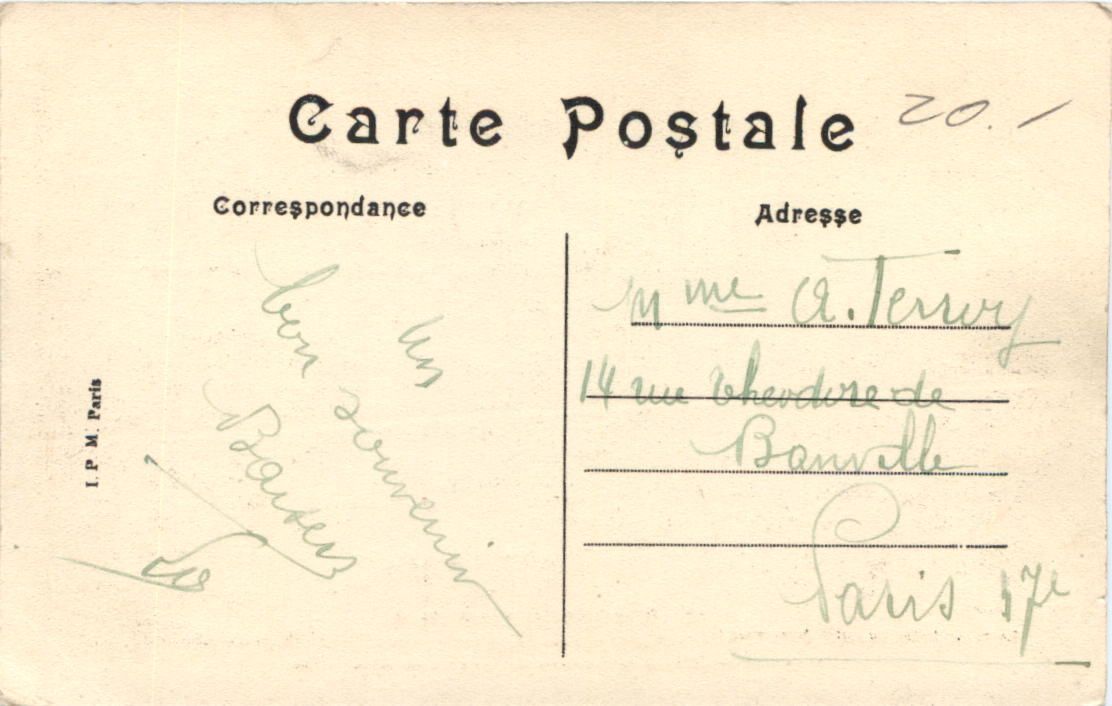 Carte Postale
20.-
Correspondance
Adresse
Un
bon souvenir
Baisers
I. P. M. Paris
Mme A. Terroy
14 rue Theodore de
Banville
Paris 17e